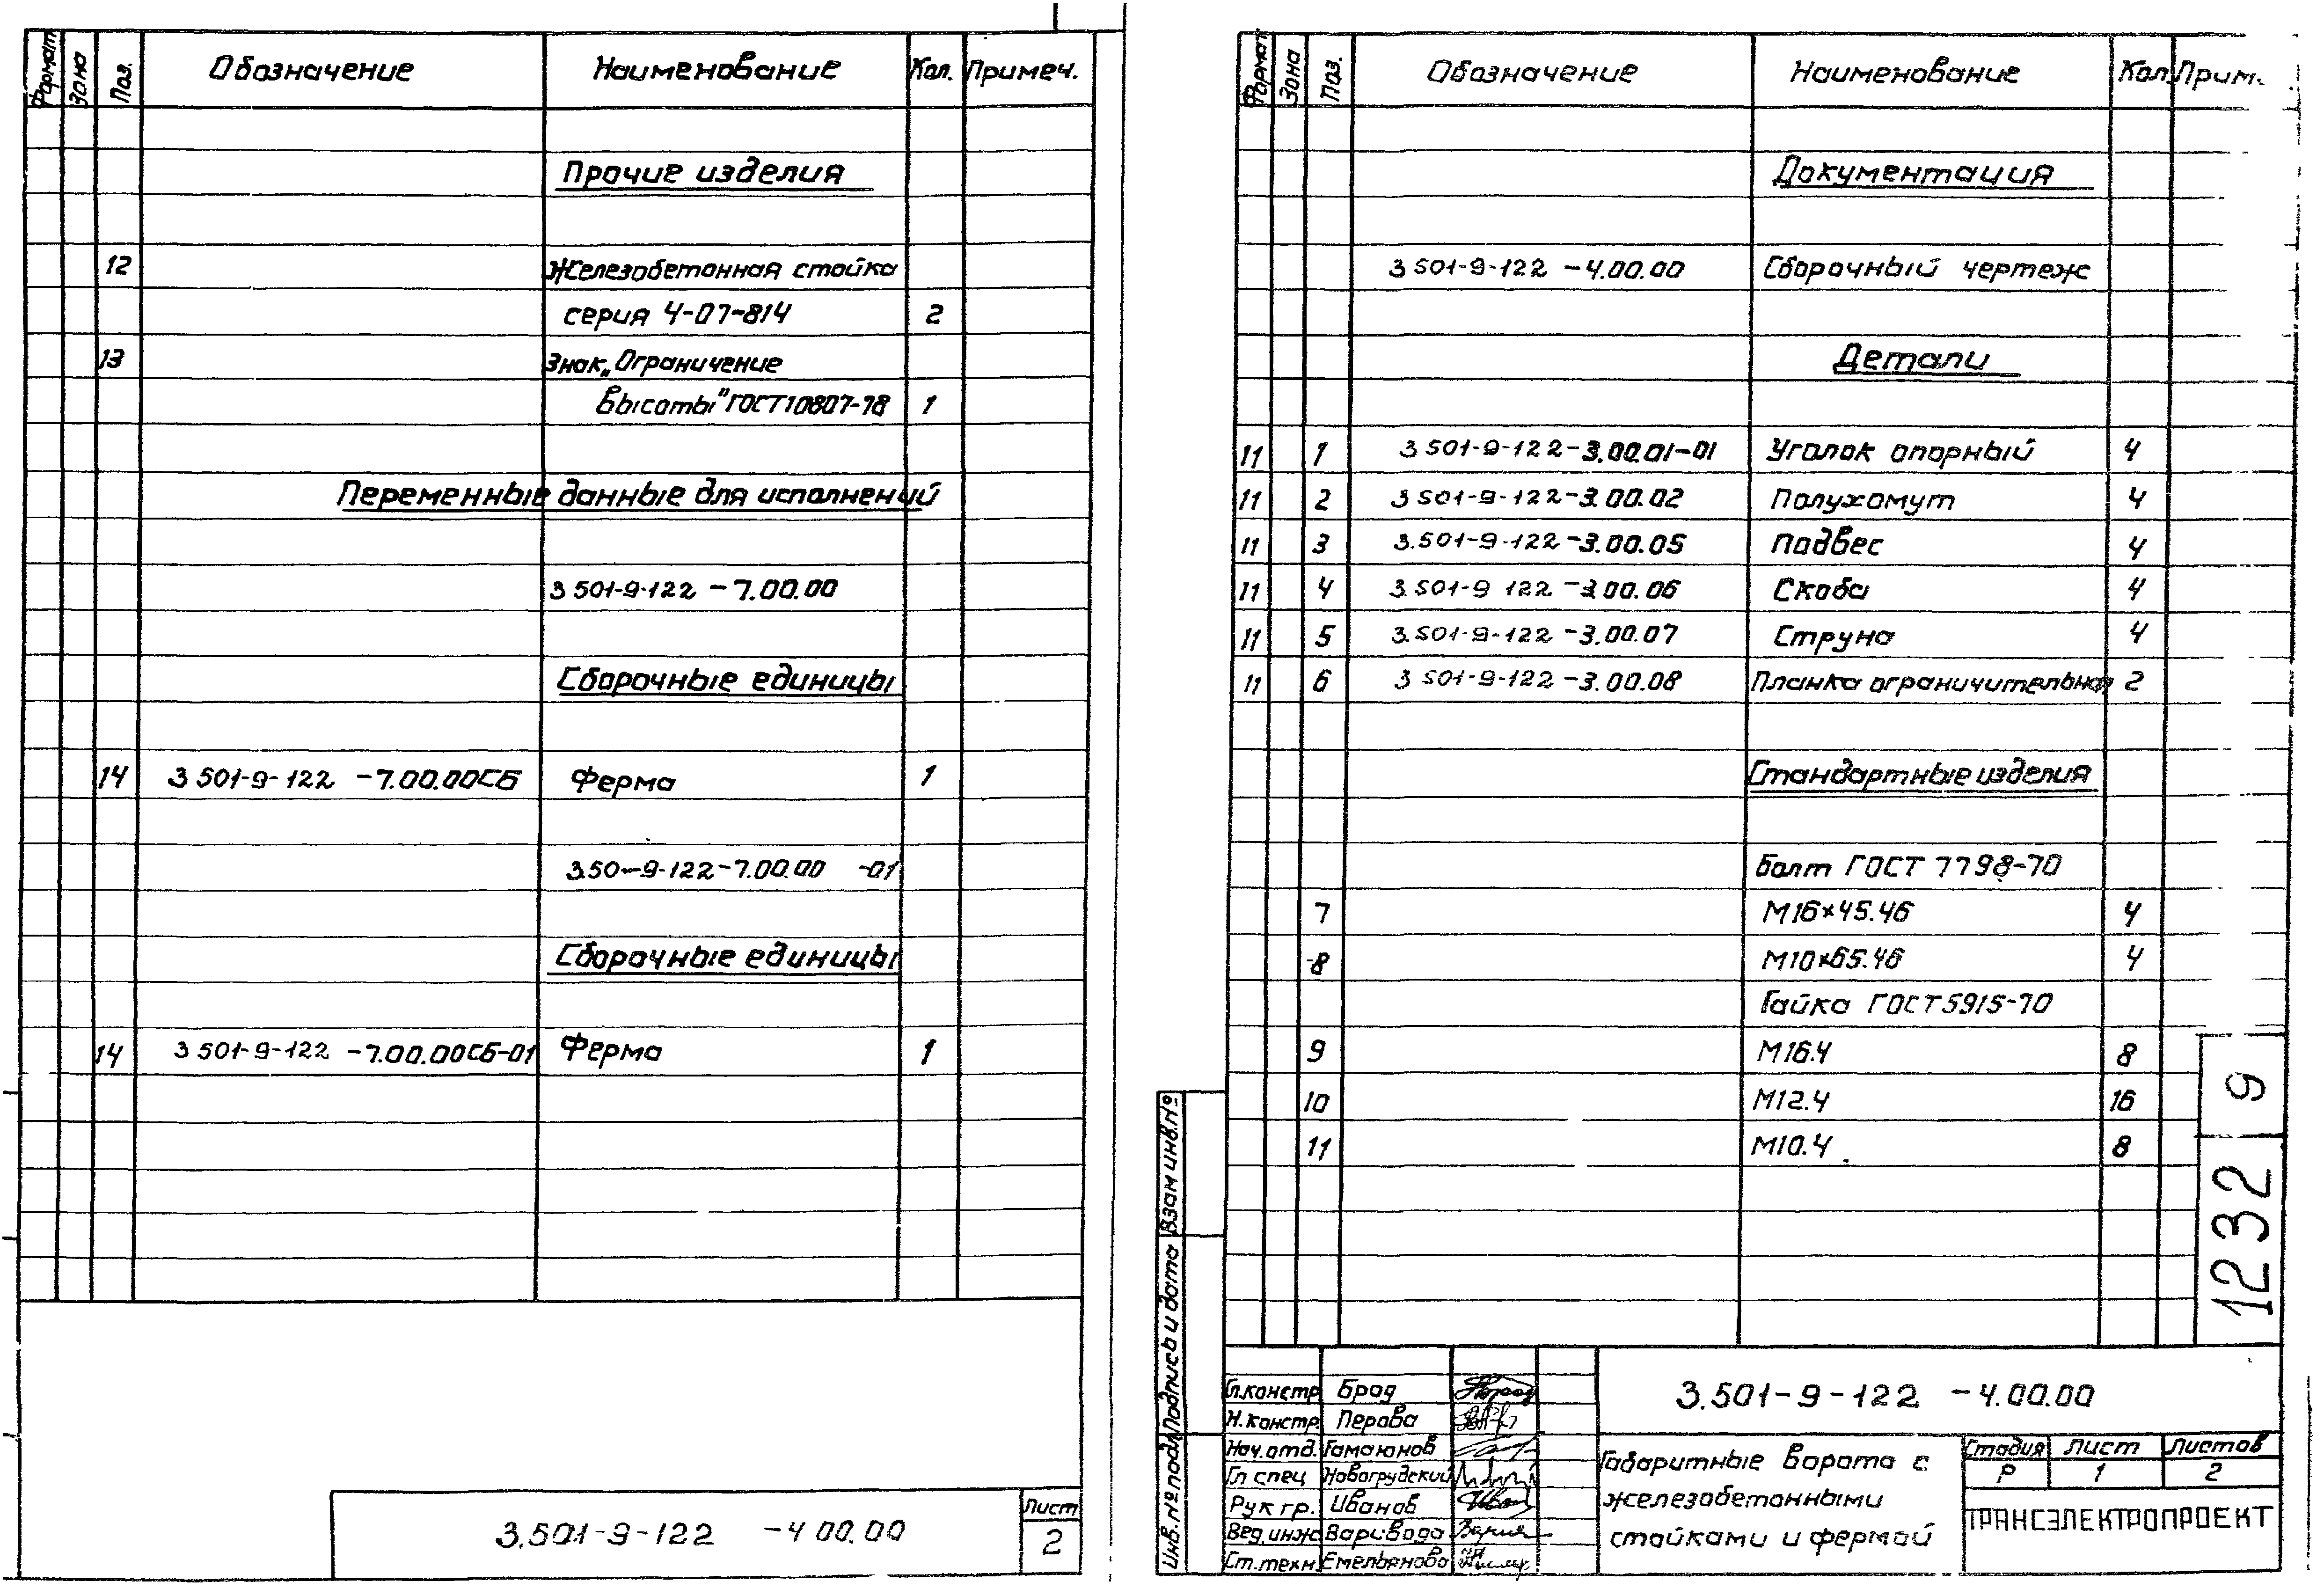 Формат Зона Поз. Обозначение Наименование Кол. Примеч.
Прочие изделия
12 Железобетонная стойка
серия 4-07-814 2
13 Знак „Ограничение
высоты" ГОСТ 10807-78 1
Переменные данные для исполнений
3 501-9-122 -7.00.00
Сборочные единицы
14 3 501-9-122 -7.00.00СБ Ферма 1
3.50-9-122-7.00.00 -01
Сборочные единицы
14 3 501-9-122 -7.00.00СБ-01 Ферма 1
3.501-9-122 -4 00.00
Лист
2
Формат Зона Поз. Обозначение Наименование Кол. Прим.
Документация
3 501-9-122 -4.00.00 Сборочный чертеж
Детали
11 1 3 501-9-122-3.00.01-01 Уголок опорный 4
11 2 3 501-9-122-3.00.02 Полухомут 4
11 3 3.501-9-122-3.00.05 Подвес 4
11 4 3.501-9 122 -3.00.06 Скоба 4
11 5 3.501-9-122-3.00.07 Струна 4
11 6 3 501-9-122-3.00.08 Планка ограничительная 2
Стандартные изделия
Болт ГОСТ 7798-70
7 М16×45.46 4
8 М10×65.46 4
Гайка ГОСТ 5915-70
9 М16.4 8
10 М12.4 16
11 М10.4 8
1232 9
Инв. № подл. Подпись и дата Взам инв. №
Гл.констр. Брод
Н.констр. Перова
Нач.отд. Гамаюнов
Гл спец Новогрудский
Рук гр. Иванов
Вед.инж Варивода
Ст.техн. Емельянова
3.501-9-122 -4.00.00
Габаритные ворота с
железобетонными
стойками и фермой
Стадия Лист Листов
Р 1 2
ТРАНСЭЛЕКТРОПРОЕКТ